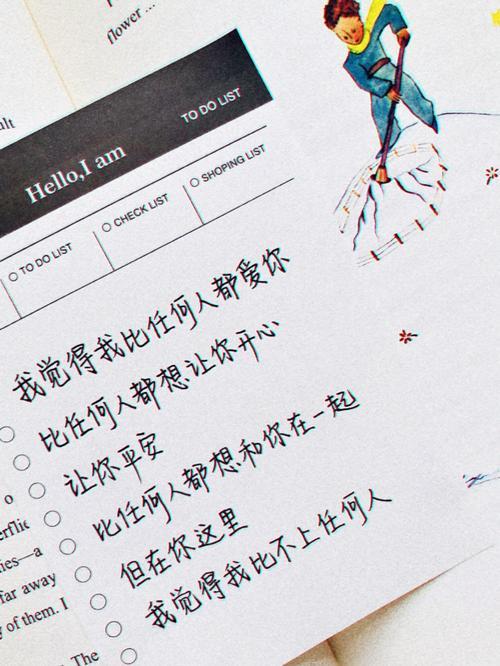 flower ...
ult
Hello,I am
TO DO LIST
TO DO LIST
CHECK LIST
SHOPING LIST
我觉得我比任何人都爱你
比任何人都想让你开心
让你平安
比任何人都想和你在一起
但在你这里
我觉得我比不上任何人
o
erflie
ies—a
far away
y of them. I
The